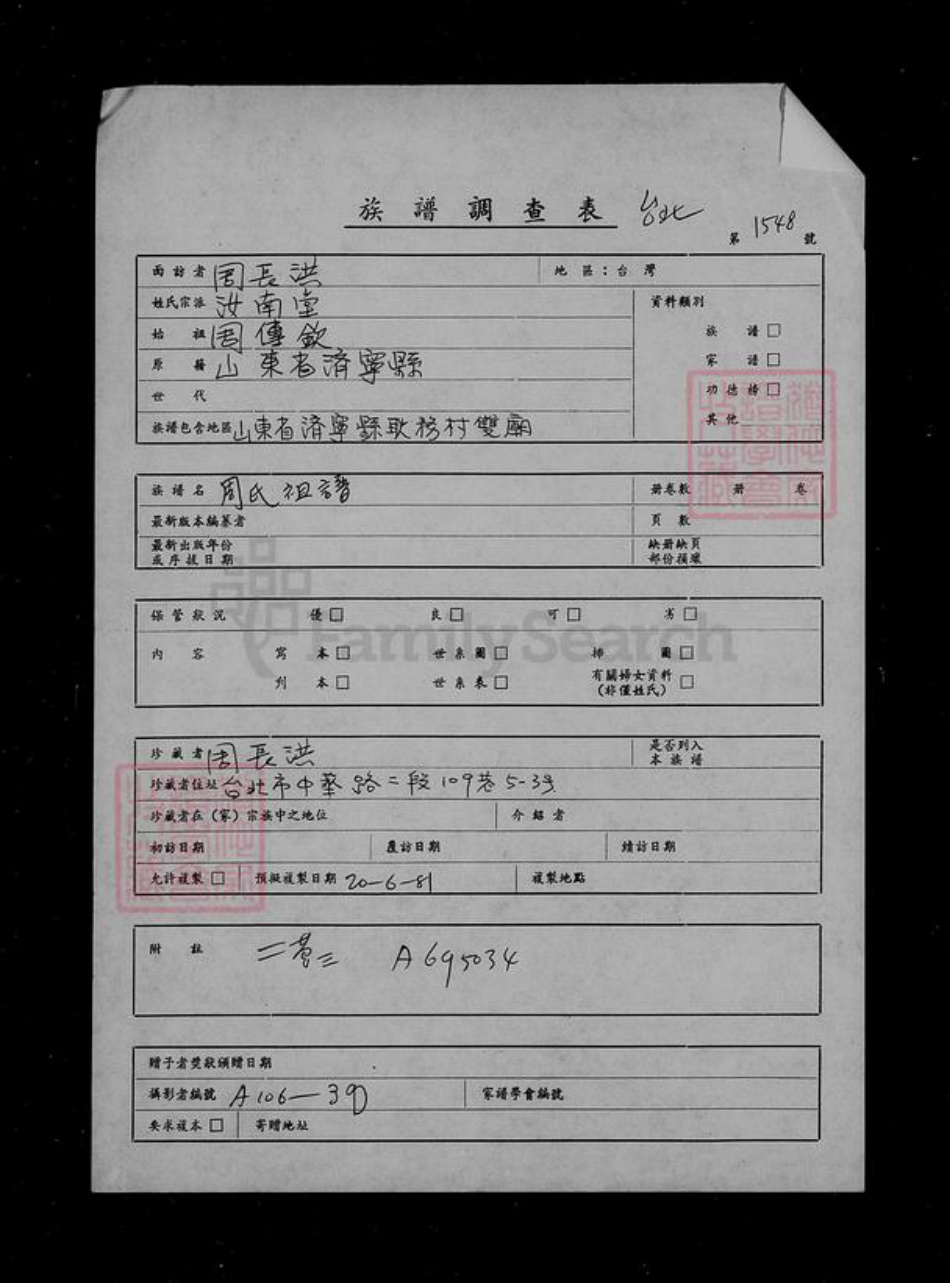 族譜調查表 台北
第 1548 號
面訪者 周長洪 地區：台灣
姓氏宗派 汝南堂 資料類別
始祖 周傳欽 族譜□
原籍 山東省濟寧縣 家譜□
世代 功德榜□
族譜包含地區 山東省濟寧縣耿務村雙廟 其他
族譜名 周氏祖譜 册卷數 册 卷
最新版本編纂者 頁數
最新出版年份 缺册缺頁
或序拔日期 部份損壞
保管狀況 優□ 良□ 可□ 劣□
內容 寫本□ 世系圖□ 掃圖□
列本□ 世系表□ 有關婦女資料□
(非僅姓氏)
珍藏者 周長洪 是否列入
本族譜
珍藏者住址 台北市中華路二段109巷5-3號
珍藏者在（家）宗族中之地位 介紹者
初訪日期 覆訪日期 續訪日期
允許複製□ 預擬複製日期 20-6-81 複製地點
附註 A695034
贈予者獎狀頒贈日期
攝影者編號 A106—39 家譜學會編號
要求複本□ 寄贈地址
FamilySearch